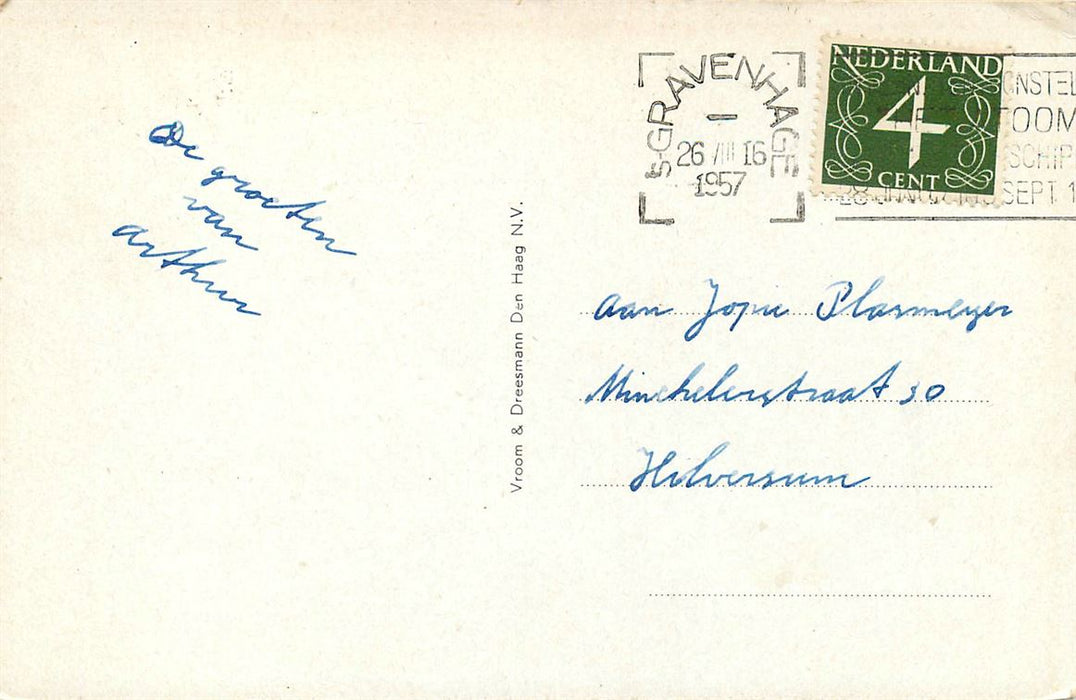 De groeten
van
Arthur
Vroom & Dreesmann Den Haag N.V.
's-GRAVENHAGE
26 VIII 16
1957
NEDERLAND
4
CENT
SEPT 1
aan Jopie Plasmeyer
Minckelersstraat 30
Hilversum